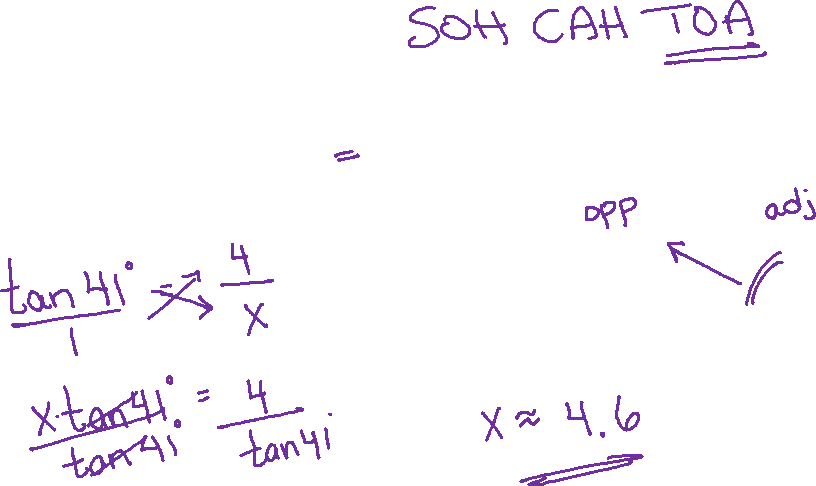 SOH CAH TOA
=
opp adj
tan 41° / 1 = 4 / x
x · tan 41° / tan 41° = 4 / tan 41
x ≈ 4.6